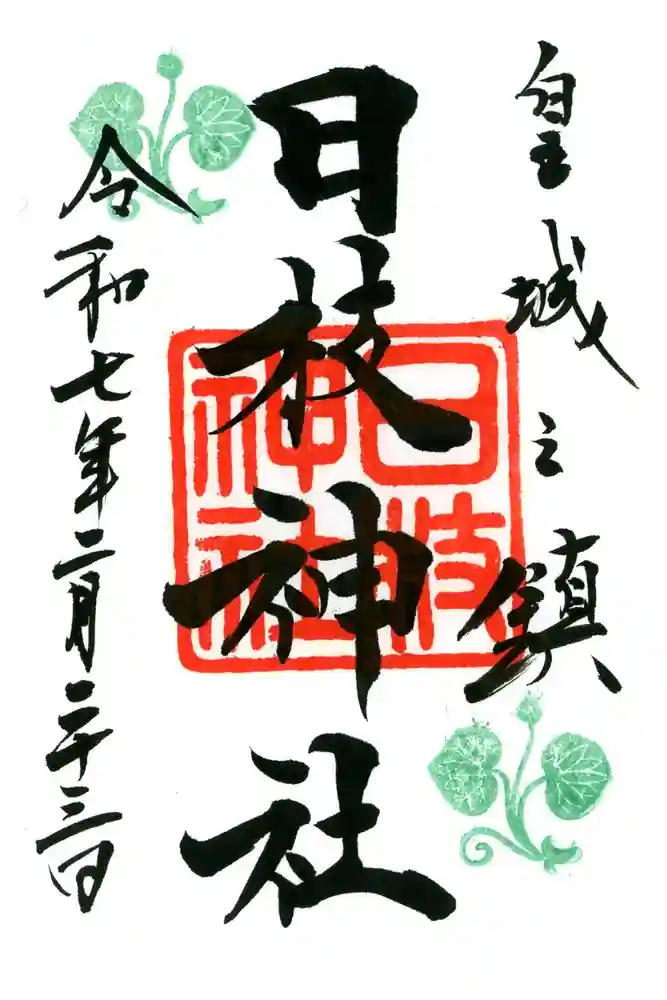 皇城之鎮
日枝神社
日枝神社
令和七年二月二十三日